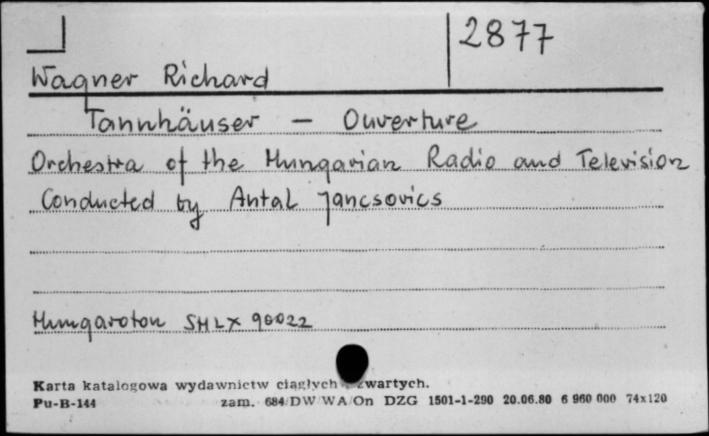 2877
Wagner Richard
Tannhäuser - Ouverture
Orchestra of the Hungarian Radio and Television
Conducted by Antal Jancsovics
Hungaroton SHLX 90022
Karta katalogowa wydawnictw ciągłych zwartych.
Pu-B-144 zam. 684/DW/WA/On DZG 1501-1-290 20.06.80 6 960 000 74x120